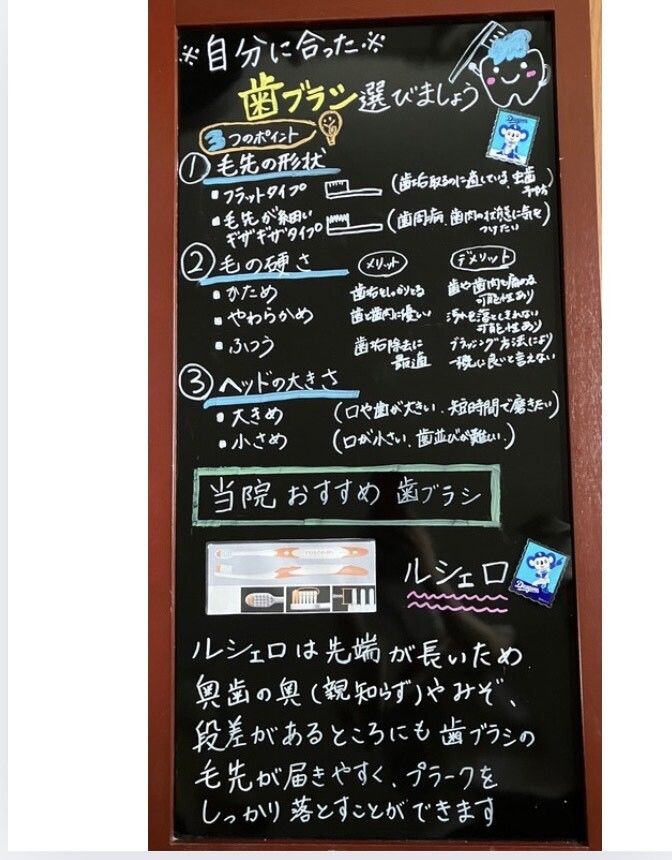 ※自分に合った※
歯ブラシ選びましょう
3つのポイント
Dragons
① 毛先の形状
▪フラットタイプ (歯垢取るのに適している、虫歯予防
▪毛先が細い (歯周病、歯肉の状態に気を
ギザギザタイプ つけたい
② 毛の硬さ メリット デメリット
▪かため 歯垢をしっかりとる 歯や歯肉を痛める
可能性あり
▪やわらかめ 歯と歯肉に優しい 汚れを落としきれない
可能性あり
▪ふつう 歯垢除去に ブラッシング方法により
最適 一概に良いと言えない
③ ヘッドの大きさ
▪大きめ (口や歯が大きい、短時間で磨きたい)
▪小さめ (口が小さい、歯並びが難しい、)
当院おすすめ 歯ブラシ
ルシェロ
Dragons
ルシェロは先端が長いため
奥歯の奥(親知らず)やみぞ、
段差があるところにも歯ブラシの
毛先が届きやすく、プラークを
しっかり落とすことができます